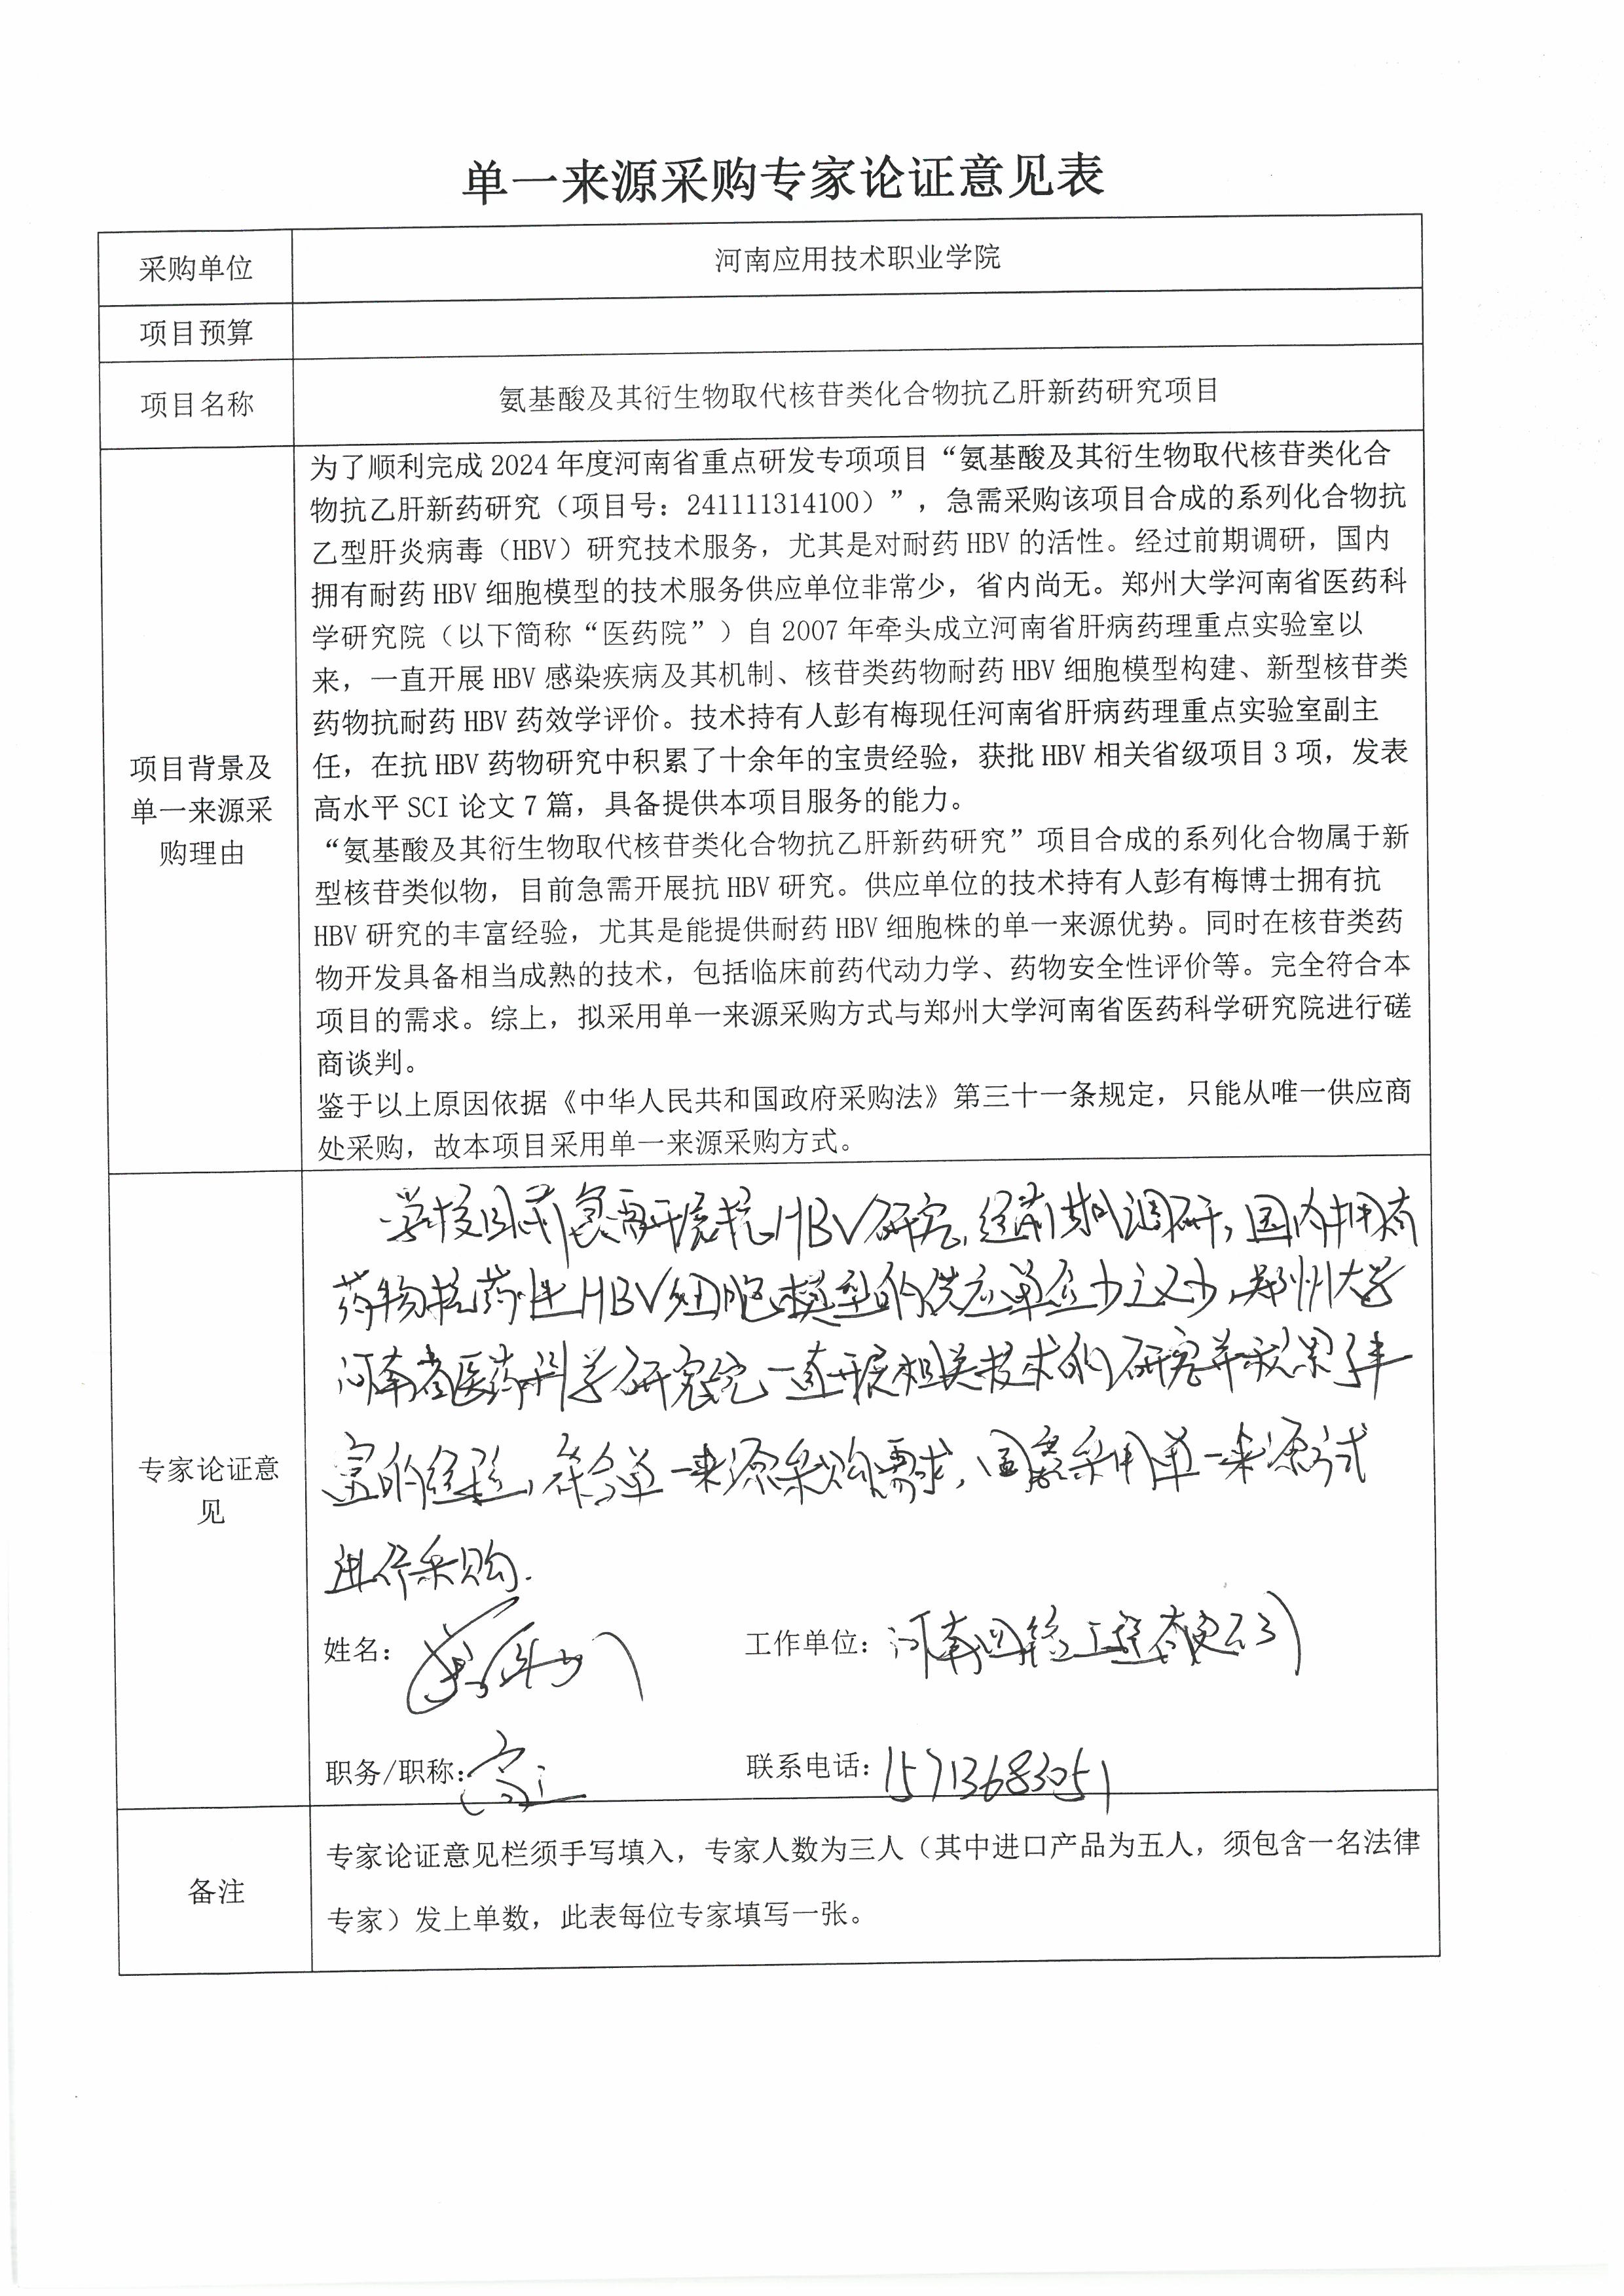 单一来源采购专家论证意见表
采购单位
河南应用技术职业学院
项目预算
项目名称
氨基酸及其衍生物取代核苷类化合物抗乙肝新药研究项目
项目背景及
单一来源采
购理由
为了顺利完成2024年度河南省重点研发专项项目“氨基酸及其衍生物取代核苷类化合
物抗乙肝新药研究（项目号：241111314100）”，急需采购该项目合成的系列化合物抗
乙型肝炎病毒（HBV）研究技术服务，尤其是对耐药HBV的活性。经过前期调研，国内
拥有耐药HBV细胞模型的技术服务供应单位非常少，省内尚无。郑州大学河南省医药科
学研究院（以下简称“医药院”）自2007年牵头成立河南省肝病药理重点实验室以
来，一直开展HBV感染疾病及其机制、核苷类药物耐药HBV细胞模型构建、新型核苷类
药物抗耐药HBV药效学评价。技术持有人彭有梅现任河南省肝病药理重点实验室副主
任，在抗HBV药物研究中积累了十余年的宝贵经验，获批HBV相关省级项目3项，发表
高水平SCI论文7篇，具备提供本项目服务的能力。
“氨基酸及其衍生物取代核苷类化合物抗乙肝新药研究”项目合成的系列化合物属于新
型核苷类似物，目前急需开展抗HBV研究。供应单位的技术持有人彭有梅博士拥有抗
HBV研究的丰富经验，尤其是能提供耐药HBV细胞株的单一来源优势。同时在核苷类药
物开发具备相当成熟的技术，包括临床前药代动力学、药物安全性评价等。完全符合本
项目的需求。综上，拟采用单一来源采购方式与郑州大学河南省医药科学研究院进行磋
商谈判。
鉴于以上原因依据《中华人民共和国政府采购法》第三十一条规定，只能从唯一供应商
处采购，故本项目采用单一来源采购方式。
专家论证意
见
学校目前急需开展抗HBV研究，经前期调研，国内拥有
药物抗药性HBV细胞模型的供应单位少之又少，郑州大学
河南省医药科学研究院一直开展相关技术的研究并积累了丰
富的经验，符合单一来源采购需求，同意采用单一来源方式
进行采购.
姓名：
工作单位：河南工程有限公司
职务/职称：高工
联系电话：15713683051
备注
专家论证意见栏须手写填入，专家人数为三人（其中进口产品为五人，须包含一名法律
专家）发上单数，此表每位专家填写一张。